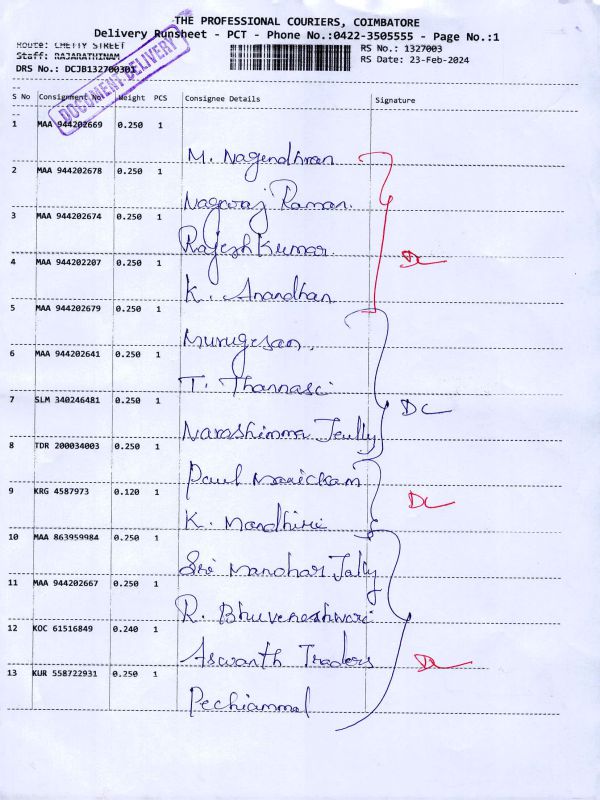 THE PROFESSIONAL COURIERS, COIMBATORE
Delivery Runsheet - PCT - Phone No.:0422-3505555 - Page No.:1
Route: CHETTY STREET
RS No.: 1327003
Staff: RAJARATHINAM
RS Date: 23-Feb-2024
DRS No.: DCJB132700301
DOCUMENT DELIVERY
S No Consignment No Weight PCS Consignee Details Signature
1 MAA 944202669 0.250 1
M. Nagendhran
2 MAA 944202678 0.250 1
Nagaraj Raman.
3 MAA 944202674 0.250 1
Rajesh Kumar
DC
4 MAA 944202207 0.250 1
K. Anandhan
5 MAA 944202679 0.250 1
Murugesan.
6 MAA 944202641 0.250 1
T. Thannasi
7 SLM 340246481 0.250 1
DC
Narashimma
8 TDR 200034003 0.250 1
Paul Manickam
9 KRG 4587973 0.120 1
DC
K. Mandhiri
10 MAA 863959984 0.250 1
Sri Manohar Jally
11 MAA 944202667 0.250 1
R. Bhuveneshwari
12 KOC 61516849 0.240 1
Aswanth Traders
DC
13 KUR 558722931 0.250 1
Pechiammal